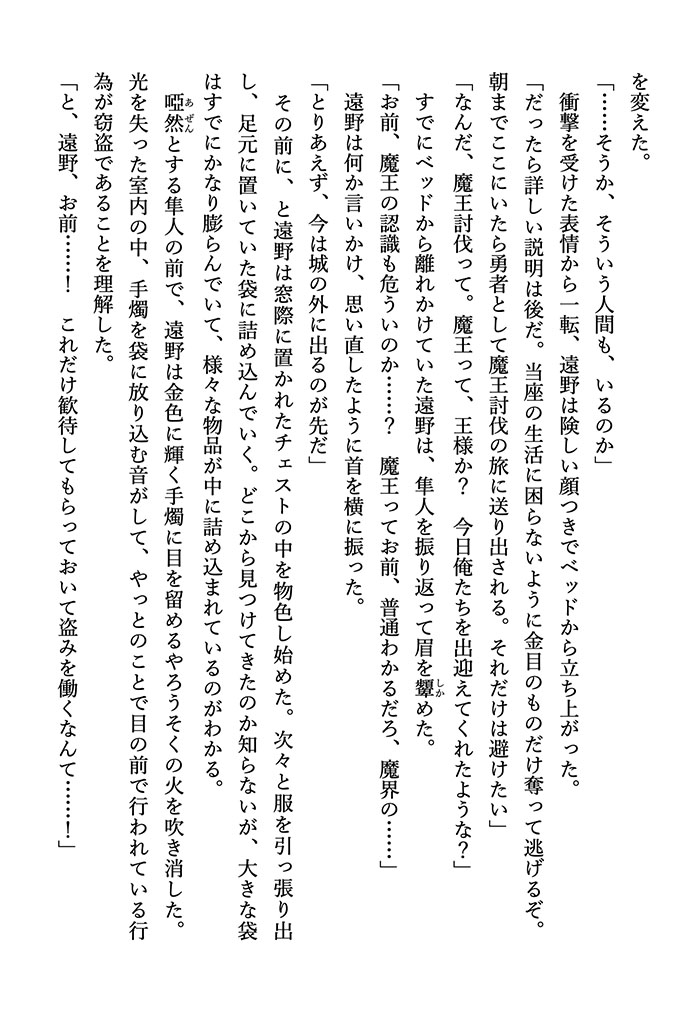 を変えた。
「……そうか、そういう人間も、いるのか」
衝撃を受けた表情から一転、遠野は険しい顔つきでベッドから立ち上がった。
「だったら詳しい説明は後だ。当座の生活に困らないように金目のものだけ奪って逃げるぞ。
朝までここにいたら勇者として魔王討伐の旅に送り出される。それだけは避けたい」
「なんだ、魔王討伐って。魔王って、王様か？　今日俺たちを出迎えてくれたような？」
すでにベッドから離れかけていた遠野は、隼人を振り返って眉を顰めた。
「お前、魔王の認識も危ういのか……？　魔王ってお前、普通わかるだろ、魔界の……」
遠野は何か言いかけ、思い直したように首を横に振った。
「とりあえず、今は城の外に出るのが先だ」
その前に、と遠野は窓際に置かれたチェストの中を物色し始めた。次々と服を引っ張り出
し、足元に置いていた袋に詰め込んでいく。どこから見つけてきたのか知らないが、大きな袋
はすでにかなり膨らんでいて、様々な物品が中に詰め込まれているのがわかる。
啞然とする隼人の前で、遠野は金色に輝く手燭に目を留めるやろうそくの火を吹き消した。
光を失った室内の中、手燭を袋に放り込む音がして、やっとのことで目の前で行われている行
為が窃盗であることを理解した。
「と、遠野、お前……！　これだけ歓待してもらっておいて盗みを働くなんて……！」